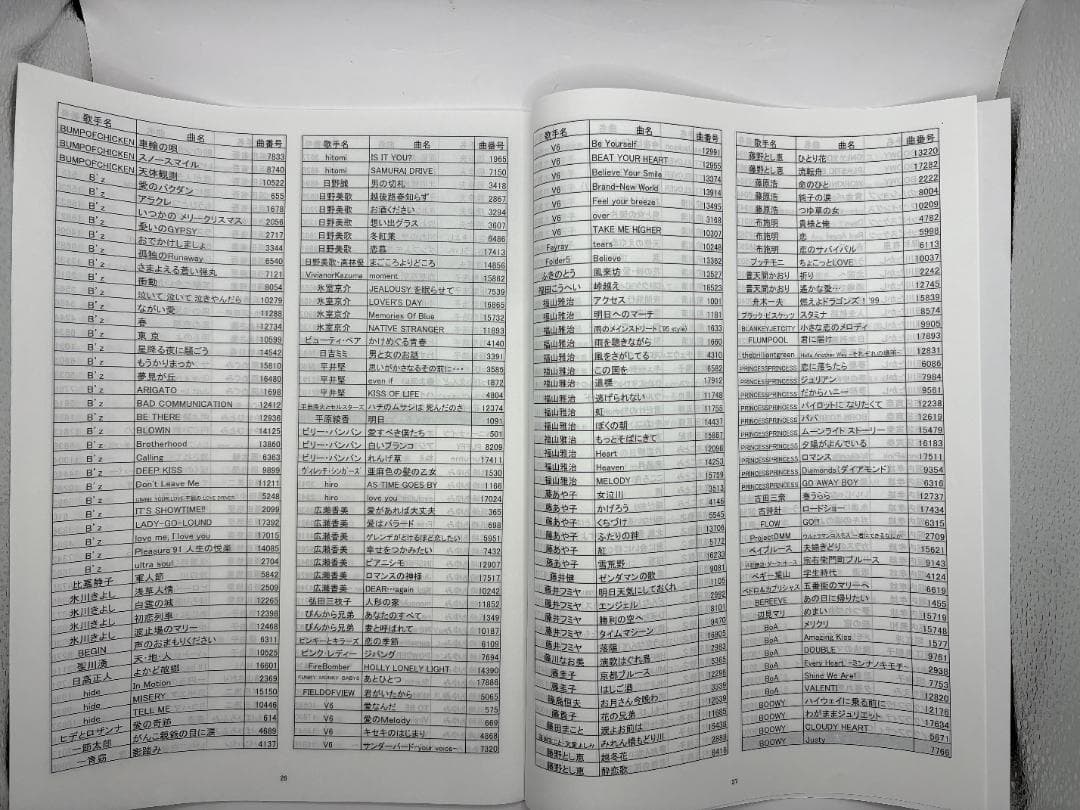 歌手名 曲名 曲番号
BUMPOFCHICKEN 車輪の唄 7833
BUMPOFCHICKEN スノースマイル 8740
BUMPOFCHICKEN 天体観測 10522
B'z 愛のバクダン 655
B'z アラクレ 1678
B'z いつかの メリークリスマス 2056
B'z 憂いのGYPSY 2717
B'z おでかけしましょ 3344
B'z 孤独のRunaway 6540
B'z さまよえる蒼い弾丸 7121
B'z 衝動 8054
B'z 泣いて 泣いて 泣きやんだら 10279
B'z ながい愛 11288
B'z 春 12734
B'z 東京 10599
B'z 星降る夜に騒ごう 14542
B'z もうかりまっか 15810
B'z 夢見が丘 16480
B'z ARIGATO 1698
B'z BAD COMMUNICATION 12412
B'z BE THERE 12936
B'z BLOWIN' 14125
B'z Brotherhood 13860
B'z Calling 6363
B'z DEEP KISS 9899
B'z Don't Leave Me 11211
B'z 5248
B'z IT'S SHOWTIME!! 2099
B'z LADY-GO-LOUND 17392
B'z love me, I love you 17015
B'z Pleasure'91 人生の悦楽 14085
B'z ultra soul 2704
比嘉 軍人節 5842
氷川きよし 浅草人情 2509
氷川きよし 白雲の城 12265
氷川きよし 初恋列車 12398
氷川きよし 波止場のマリー 12468
BEGIN 声のおまもりください 6311
聖川湧 天・地・人 10525
日高正人 よかど故郷 16601
hide In Motion 2369
hide MISERY 15150
hide TELL ME 10446
ヒデとロザンナ 愛の奇跡 614
一節太郎 がんこ親爺の目に涙 4689
一青窈 影踏み 4137
歌手名 曲名 曲番号
hitomi IS IT YOU? 1965
hitomi SAMURAI DRIVE 7150
日野 男の切札 3418
日野美歌 越後路春知らず 2867
日野美歌 お酒ください 3294
日野美歌 想い出グラス 3607
日野美歌 冬紅葉 6486
日野美歌 恋慕 17413
日野美歌・高林優 まごころよりどころ 14856
VivianorKazuma moment 15882
氷室京介 JEALOUSYを眠らせて 7539
氷室京介 LOVER'S DAY 19865
氷室京介 Memories Of Blue 15732
氷室京介 NATIVE STRANGER 11893
ビューティ・ペア かけめぐる青春 4140
日吉ミミ 男と女のお話 3391
平井堅 思いがかさなるその前に・・・ 3586
平井堅 even if 1872
平井堅 KISS OF LIFE 4804
平田隆夫とセルスターズ ハチのムサシは 死んだのさ 12374
平原綾香 明日 1091
ビリー・バンバン 愛すべき僕たち 501
ビリー・バンバン 白いブランコ 8209
ビリー・バンバン れんげ草 17411
ヴィレッジ・シンガーズ 亜麻色の髪の乙女 1530
hiro AS TIME GOES BY 1186
hiro love you 17024
広瀬香美 愛があれば大丈夫 365
広瀬香美 愛はバラード 698
広瀬香美 ゲレンデがとけるほど恋したい 5951
広瀬香美 幸せをつかみたい 7432
広瀬香美 ピアニシモ 12907
広瀬香美 ロマンスの神様 17517
広瀬香美 DEAR…again 10242
弘田三枝子 人形の家 11852
ぴんから兄弟 あなたのすべて 1349
ぴんから兄弟 妻と呼ばれて 10187
ピンキーとキラーズ 恋の季節 6109
ピンク・レディー ジパング 7694
FireBomber HOLLY LONELY LIGHT 14390
FUNKY MONKEY BABYS あとひとつ 17886
FIELDOFVIEW 君がいたから 5065
V6 愛なんだ 575
V6 愛のMelody 669
V6 キセキのはじまり 4868
V6 サンダーバード-your voice- 7320
26
歌手名 曲名 曲番号
V6 Be Yourself 12991
V6 BEAT YOUR HEART 12955
V6 Believe Your Smile 13074
V6 Brand-New World 13914
V6 Feel your breeze 13495
V6 over 3168
V6 TAKE ME HIGHER 10307
Fayray tears 10248
Folder5 Believe 13362
ふきのとう 風来坊 13527
福田こうへい 峠越え 18523
福山雅治 アクセス 1001
福山雅治 明日へのマーチ 1181
福山雅治 雨のメインストリート('95 style) 1633
福山雅治 雨を聴きながら 1660
福山雅治 風をさがしてる 4310
福山雅治 この国を 6582
福山雅治 道標 17912
福山雅治 逃げられない 11748
福山雅治 虹 11755
福山雅治 ぼくの朝 14437
福山雅治 もっとそばにきて 15987
福山雅治 Heart 12096
福山雅治 Heaven 14253
福山雅治 MELODY 15759
藤あや子 女泣川 3513
藤あや子 かげろう 4145
藤あや子 くちづけ 5545
藤あや子 ふたりの絆 13706
藤あや子 紅 5772
藤あや子 雪荒野 16233
藤井健 ゼンダマンの歌 9081
藤井フミヤ 明日天気にしておくれ 1105
藤井フミヤ エンジェル 2992
藤井フミヤ 勝利の空へ 8101
藤井フミヤ タイムマシーン 9470
藤井フミヤ 落陽 16905
藤川なお美 演歌はぐれ鳥 2983
藤圭子 京都ブルース 5365
藤圭子 はしご酒 12298
藤島桓夫 お月さん今晩わ 3339
藤 花の兄弟 12538
藤田まこと 涙よお前は 11685
みれん横もどり川 15438
藤野とし恵 越冬花 2883
藤野とし恵 酔恋歌 8416
歌手名 曲名 曲番号
藤野とし恵 ひとり花 13220
藤野とし恵 流転舟 17282
藤原浩 命のひと 2222
藤原浩 銚子の涙 8004
藤原浩 つゆ草の女 10209
布施明 貴様と俺 4782
布施明 恋 5998
布施明 恋のサバイバル 6113
プッチモニ ちょこっとLOVE 10037
普天間かおり 祈り 2242
普天間かおり 遥かな愛… 12745
舟木一夫 燃えよドラゴンズ！'99 15839
ブラック・ビスケッツ スタミナ 8574
BLANKEYJETCITY 小さな恋のメロディ 9905
FLUMPOOL 君に届け 17893
thebrilliantgreen Hello Another Way -それぞれの場所- 12831
PRINCESSPRINCESS 恋に落ちたら 6086
PRINCESSPRINCESS ジュリアン 7984
PRINCESSPRINCESS だからハニー 9561
PRINCESSPRINCESS パイロットに なりたくて 12238
PRINCESSPRINCESS パパ 12619
PRINCESSPRINCESS ムーンライト ストーリー 15479
PRINCESSPRINCESS 夕陽がよんでいる 16183
PRINCESSPRINCESS ロマンス 17511
PRINCESSPRINCESS Diamonds〈ダイアモンド〉 9354
PRINCESSPRINCESS GO AWAY BOY 6316
古田三奈 春うらら 12737
古時計 ロードショー 17434
FLOW GO!!! 6315
ProjectDMM 2709
ベイブルース 夫婦きどり 15621
宗右衛門町ブルース 9143
ペギー葉山 学生時代 4124
ペドロ&カプリシャス 五番街のマリーへ 6619
BEREEVE あの日に帰りたい 1455
辺見マリ めまい 15719
BoA メリクリ 15748
BoA Amazing Kiss 1577
BoA DOUBLE 9761
BoA Every Heart -ミンナノキモチ- 2938
BoA Shine We Are! 7753
BoA VALENTI 12820
BOOWY ハイウェイに乗る前に 12176
BOOWY わがままジュリエット 17634
BOOWY CLOUDY HEART 5671
BOOWY Justy 7766
27